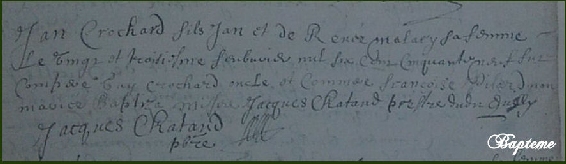 Jan Crochard fils Jan et de Renee malacy sa femme
Le vingt et troisisme febvrier mil six cens cinquante neuf fut
Compere Guy Crochard oncle et Commere francoise
baptize missire Jacques Chatand prestre dudit
Jacques Chatand
pbre
Bapteme